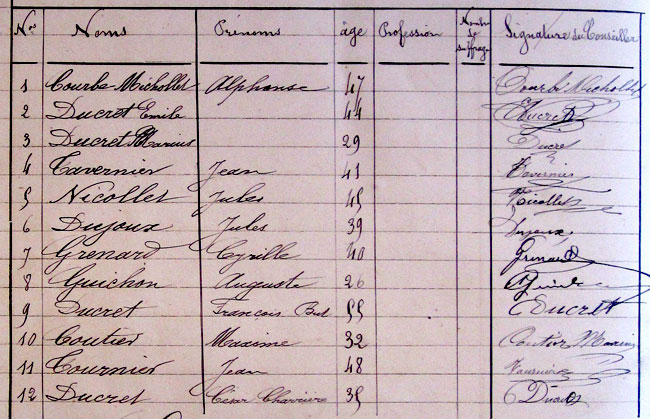 Nos Noms Prénoms âge Profession Nombre de suffrages Signature du Conseiller
1 Courbe Michollet Alphonse 47 Courbe Michollet
2 Ducret Emile 44 Ducret
3 Ducret Marius 29 Ducre
4 Tavernier Jean 41 Tavernier
5 Nicollet Jules 45 Nicollet
6 Dujoux Jules 39 Dujoux
7 Grenard Cyrille 40 Grenard
8 Guichon Auguste 26
9 Ducret François 55 Ducret
10 Coutier Maxime 32 Coutier Maxime
11 Tournier Jean 48 Tournier
12 Ducret César Charrière 35